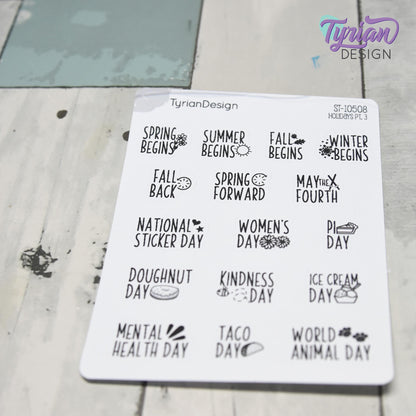 Tyrian
DESIGN
TyrianDesign
ST-10508
HOLIDAYS PT. 3
SPRING
BEGINS
SUMMER
BEGINS
FALL
BEGINS
WINTER
BEGINS
FALL
BACK
SPRING
FORWARD
MAY THE
FOURTH
NATIONAL
STICKER DAY
WOMEN'S
DAY
PI
DAY
DOUGHNUT
DAY
KINDNESS
DAY
ICE CREAM
DAY
MENTAL
HEALTH DAY
TACO
DAY
WORLD
ANIMAL DAY